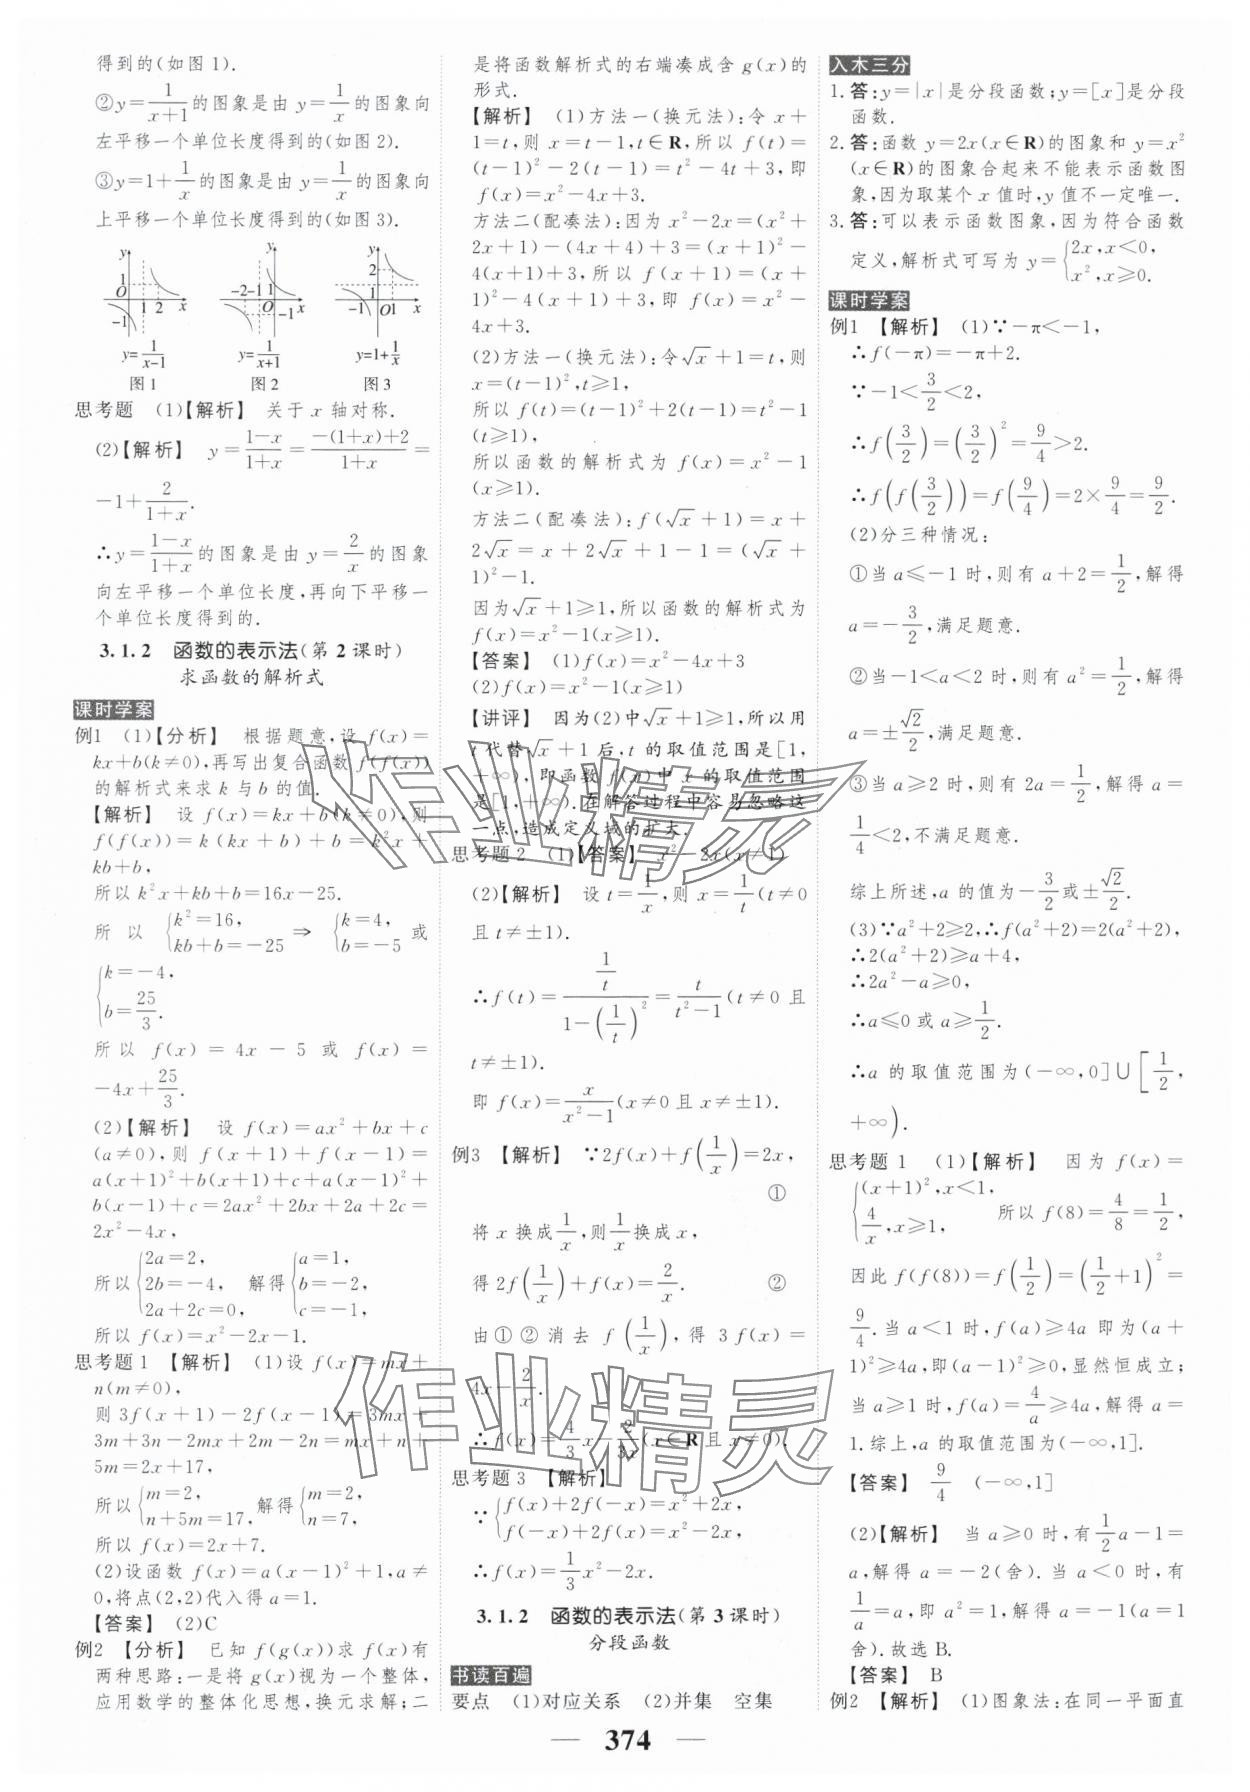 得到的(如图 1).
②y=1/(x+1)的图象是由 y=1/x的图象向
左平移一个单位长度得到的(如图 2).
③y=1+1/x的图象是由 y=1/x的图象向
上平移一个单位长度得到的(如图 3).
y 1 O 1 2 x -1
y -2-1 1 O -1 x
y 2 1 -1 O 1 x
y=1/(x-1) y=1/(x+1) y=1+1/x
图 1 图 2 图 3
思考题 (1)【解析】 关于 x 轴对称.
(2)【解析】 y=(1-x)/(1+x)=(-(1+x)+2)/(1+x)=
-1+2/(1+x).
∴y=(1-x)/(1+x)的图象是由 y=2/x的图象
向左平移一个单位长度,再向下平移一
个单位长度得到的.
3.1.2 函数的表示法(第 2 课时)
求函数的解析式
课时学案
例1 (1)【分析】 根据题意,设 f(x)=
kx+b(k≠0),再写出复合函数 f(f(x))
的解析式来求 k 与 b 的值.
【解析】 设 f(x)=kx+b(k≠0),则
f(f(x))=k(kx+b)+b=k²x+
kb+b,
所以 k²x+kb+b=16x-25.
所以 {k²=16, kb+b=-25 ⇒ {k=4, b=-5 或
{k=-4, b=25/3.
所以 f(x)=4x-5 或 f(x)=
-4x+25/3.
(2)【解析】 设 f(x)=ax²+bx+c
(a≠0),则 f(x+1)+f(x-1)=
a(x+1)²+b(x+1)+c+a(x-1)²+
b(x-1)+c=2ax²+2bx+2a+2c=
2x²-4x,
所以{2a=2, 2b=-4, 2a+2c=0, 解得{a=1, b=-2, c=-1,
所以 f(x)=x²-2x-1.
思考题 1 【解析】 (1)设 f(x)=mx+
n(m≠0),
则 3f(x+1)-2f(x-1)=3mx+
3m+3n-2mx+2m-2n=mx+n+
5m=2x+17,
所以{m=2, n+5m=17, 解得{m=2, n=7,
所以 f(x)=2x+7.
(2)设函数 f(x)=a(x-1)²+1,a≠
0,将点(2,2)代入得 a=1.
【答案】 (2)C
例2 【分析】 已知 f(g(x))求 f(x)有
两种思路:一是将 g(x)视为一个整体,
应用数学的整体化思想,换元求解;二
是将函数解析式的右端凑成含 g(x)的
形式.
【解析】 (1)方法一(换元法):令 x+
1=t,则 x=t-1,t∈R,所以 f(t)=
(t-1)²-2(t-1)=t²-4t+3,即
f(x)=x²-4x+3.
方法二(配凑法):因为 x²-2x=(x²+
2x+1)-(4x+4)+3=(x+1)²-
4(x+1)+3,所以 f(x+1)=(x+
1)²-4(x+1)+3,即 f(x)=x²-
4x+3.
(2)方法一(换元法):令√x+1=t,则
x=(t-1)²,t≥1,
所以 f(t)=(t-1)²+2(t-1)=t²-1
(t≥1),
所以函数的解析式为 f(x)=x²-1
(x≥1).
方法二(配凑法):f(√x+1)=x+
2√x=x+2√x+1-1=(√x+
1)²-1.
因为√x+1≥1,所以函数的解析式为
f(x)=x²-1(x≥1).
【答案】 (1)f(x)=x²-4x+3
(2)f(x)=x²-1(x≥1)
【讲评】 因为(2)中√x+1≥1,所以用
t 代替√x+1 后,t 的取值范围是[1,
+∞),即函数 f(x)中 x 的取值范围
是[1,+∞).在解答过程中容易忽略这
一点,造成定义域的扩大.
思考题 2 (1)【答案】 x²-2x(x≠1)
(2)【解析】 设 t=1/x,则 x=1/t(t≠0
且 t≠±1).
∴f(t)=(1/t)/(1-(1/t)²)=t/(t²-1)(t≠0 且
t≠±1).
即 f(x)=x/(x²-1)(x≠0 且 x≠±1).
例3 【解析】 ∵2f(x)+f(1/x)=2x,
①
将 x 换成1/x,则1/x换成 x,
得 2f(1/x)+f(x)=2/x. ②
由①②消去 f(1/x),得 3f(x)=
4x-2/x.
∴f(x)=4/3x-2/3x(x∈R且 x≠0).
思考题 3 【解析】
∵{f(x)+2f(-x)=x²+2x, f(-x)+2f(x)=x²-2x,
∴f(x)=1/3x²-2x.
3.1.2 函数的表示法(第 3 课时)
分段函数
书读百遍
要点 (1)对应关系 (2)并集 空集
入木三分
1.答:y=|x|是分段函数;y=[x]是分段
函数.
2.答:函数 y=2x(x∈R)的图象和 y=x²
(x∈R)的图象合起来不能表示函数图
象,因为取某个 x 值时,y 值不一定唯一.
3.答:可以表示函数图象,因为符合函数
定义,解析式可写为 y={2x,x<0, x²,x≥0.
课时学案
例1 【解析】 (1)∵-π<-1,
∴f(-π)=-π+2.
∵-1<3/2<2,
∴f(3/2)=(3/2)²=9/4>2.
∴f(f(3/2))=f(9/4)=2×9/4=9/2.
(2)分三种情况:
①当 a≤-1 时,则有 a+2=1/2,解得
a=-3/2,满足题意.
②当-1<a<2 时,则有 a²=1/2,解得
a=±√2/2,满足题意.
③当 a≥2 时,则有 2a=1/2,解得 a=
1/4<2,不满足题意.
综上所述,a 的值为-3/2或±√2/2.
(3)∵a²+2≥2,∴f(a²+2)=2(a²+2),
∴2(a²+2)≥a+4,
∴2a²-a≥0,
∴a≤0 或 a≥1/2.
∴a 的取值范围为(-∞,0]∪[1/2,
+∞).
思考题 1 (1)【解析】 因为 f(x)=
{(x+1)²,x<1, 4/x,x≥1, 所以 f(8)=4/8=1/2,
因此 f(f(8))=f(1/2)=(1/2+1)²=
9/4.当 a<1 时,f(a)≥4a 即为(a+
1)²≥4a,即(a-1)²≥0,显然恒成立;
当 a≥1 时,f(a)=4/a≥4a,解得 a=
1.综上,a 的取值范围为(-∞,1].
【答案】 9/4 (-∞,1]
(2)【解析】 当 a≥0 时,有1/2a-1=
a,解得 a=-2(舍).当 a<0 时,有
1/a=a,即 a²=1,解得 a=-1(a=1
舍).故选 B.
【答案】 B
例2 【解析】 (1)图象法:在同一平面直
— 374 —
作业精灵
作业精灵